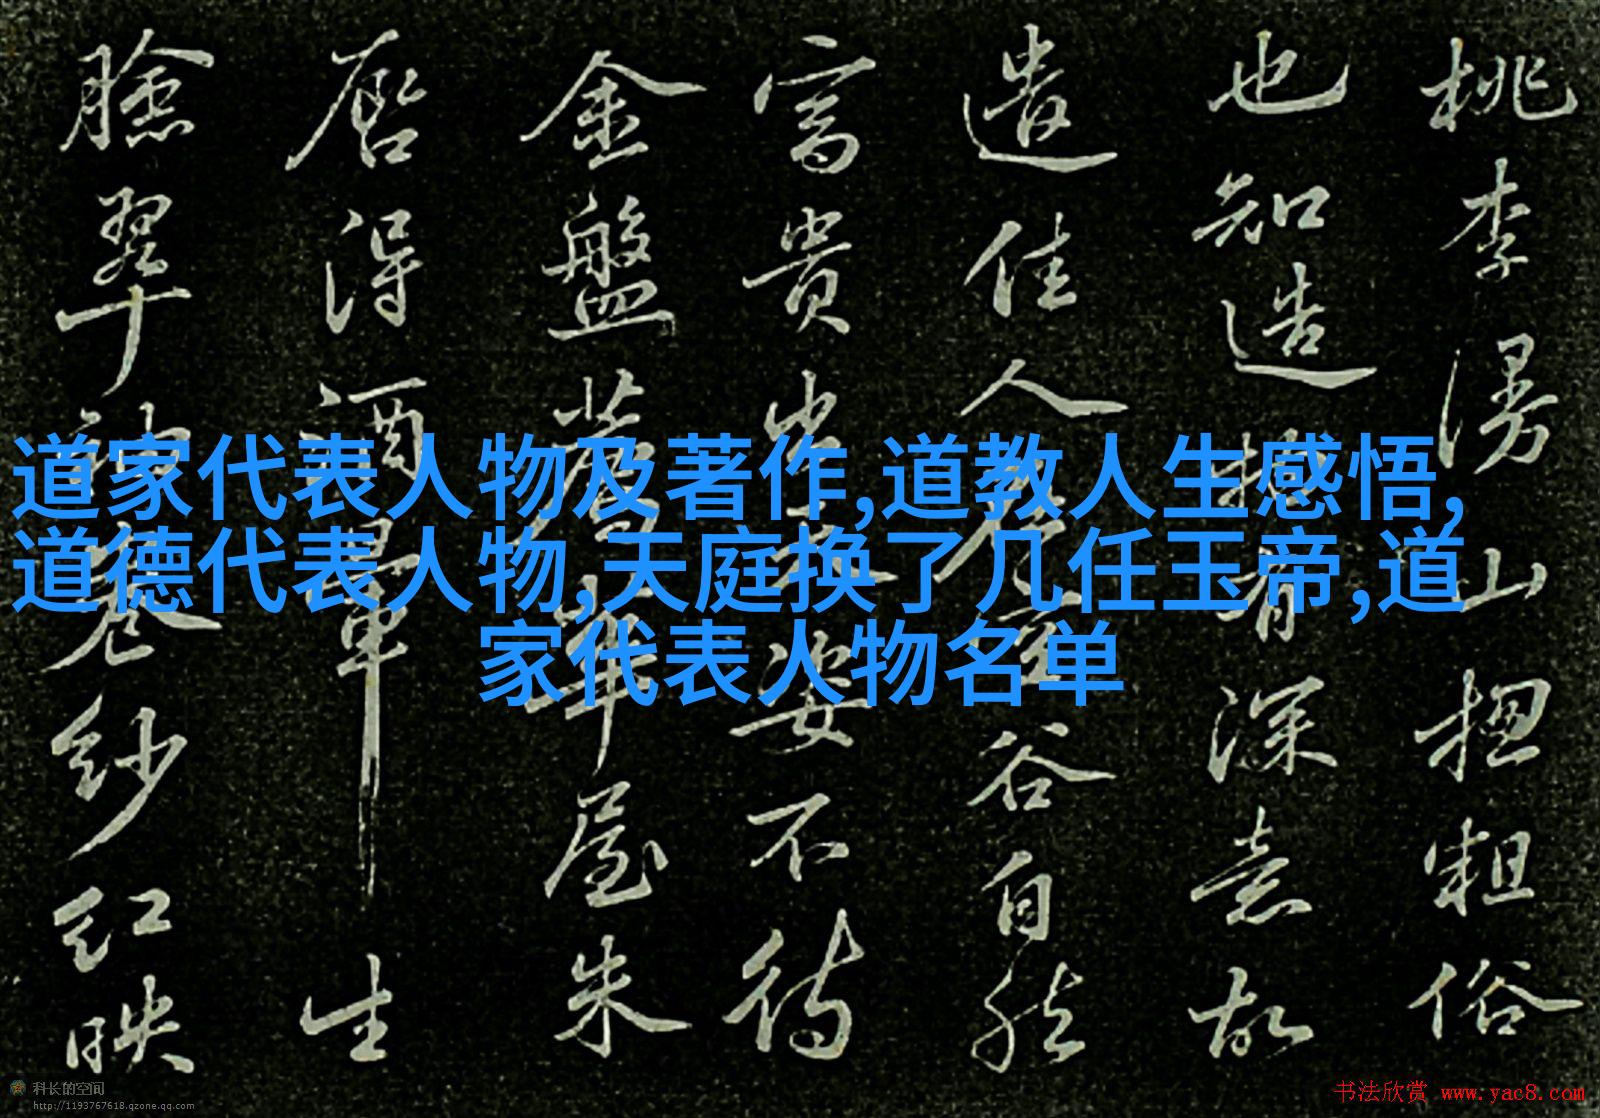 道家代表人物及著作,道教人生感悟,
道德代表人物,天庭换了几任玉帝,道
家代表人物名单
桃李漫山揔粗俗
也知造物有深意故
遣佳人在空谷自然
富貴出天姿不待
金盤薦華屋朱
唇得酒暈生
臉翠袖卷紗紅映
科长的空间
http://1193767618.qzone.qq.com
书法欣赏 www.yac8.com